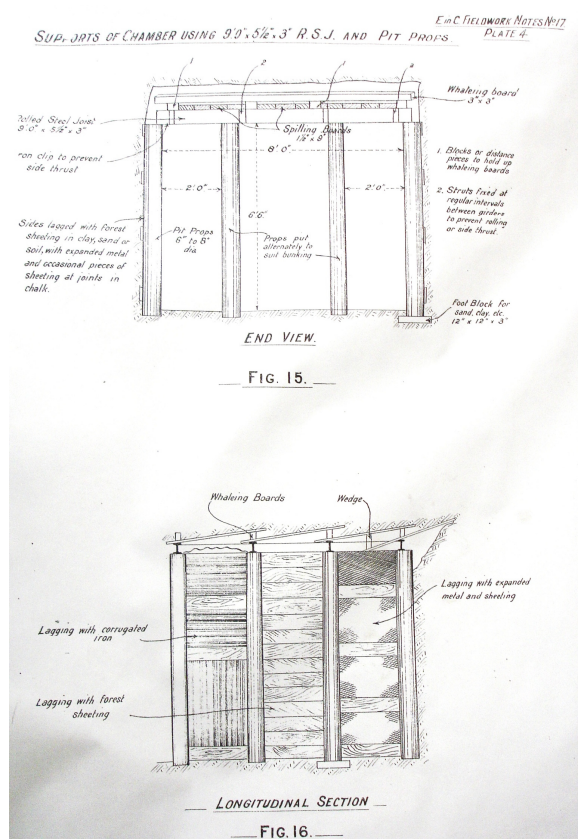 E in C. FIELDWORK NOTES Nº17
PLATE 4.
SUPPORTS OF CHAMBER USING 9'0" x 5½" x 3" R.S.J. AND PIT PROPS
1
2
1
2
Whaleing board
3" x 3"
Rolled Steel Joist
9'0" x 5½" x 3"
Spilling Boards
1½" x 9"
Iron clip to prevent
side thrust
8'.0"
2'.0"
2'.0"
6'6"
1. Blocks or distance
pieces to hold up
whaleing boards
2. Struts fixed at
regular intervals
between girders
to prevent rolling
or side thrust.
Sides lagged with forest
sheeting in clay, sand or
soil, with expanded metal
and occasional pieces of
sheeting at joints in
chalk.
Pit Props
6" to 8"
dia
Props put
alternately to
suit bunking
Foot Block for
sand, clay, etc.
12" x 12" x 3"
END VIEW.
FIG. 15.
Whaleing Boards
Wedge
Lagging with expanded
metal and sheeting
Lagging with corrugated
iron
Lagging with forest
sheeting
LONGITUDINAL SECTION
FIG. 16.